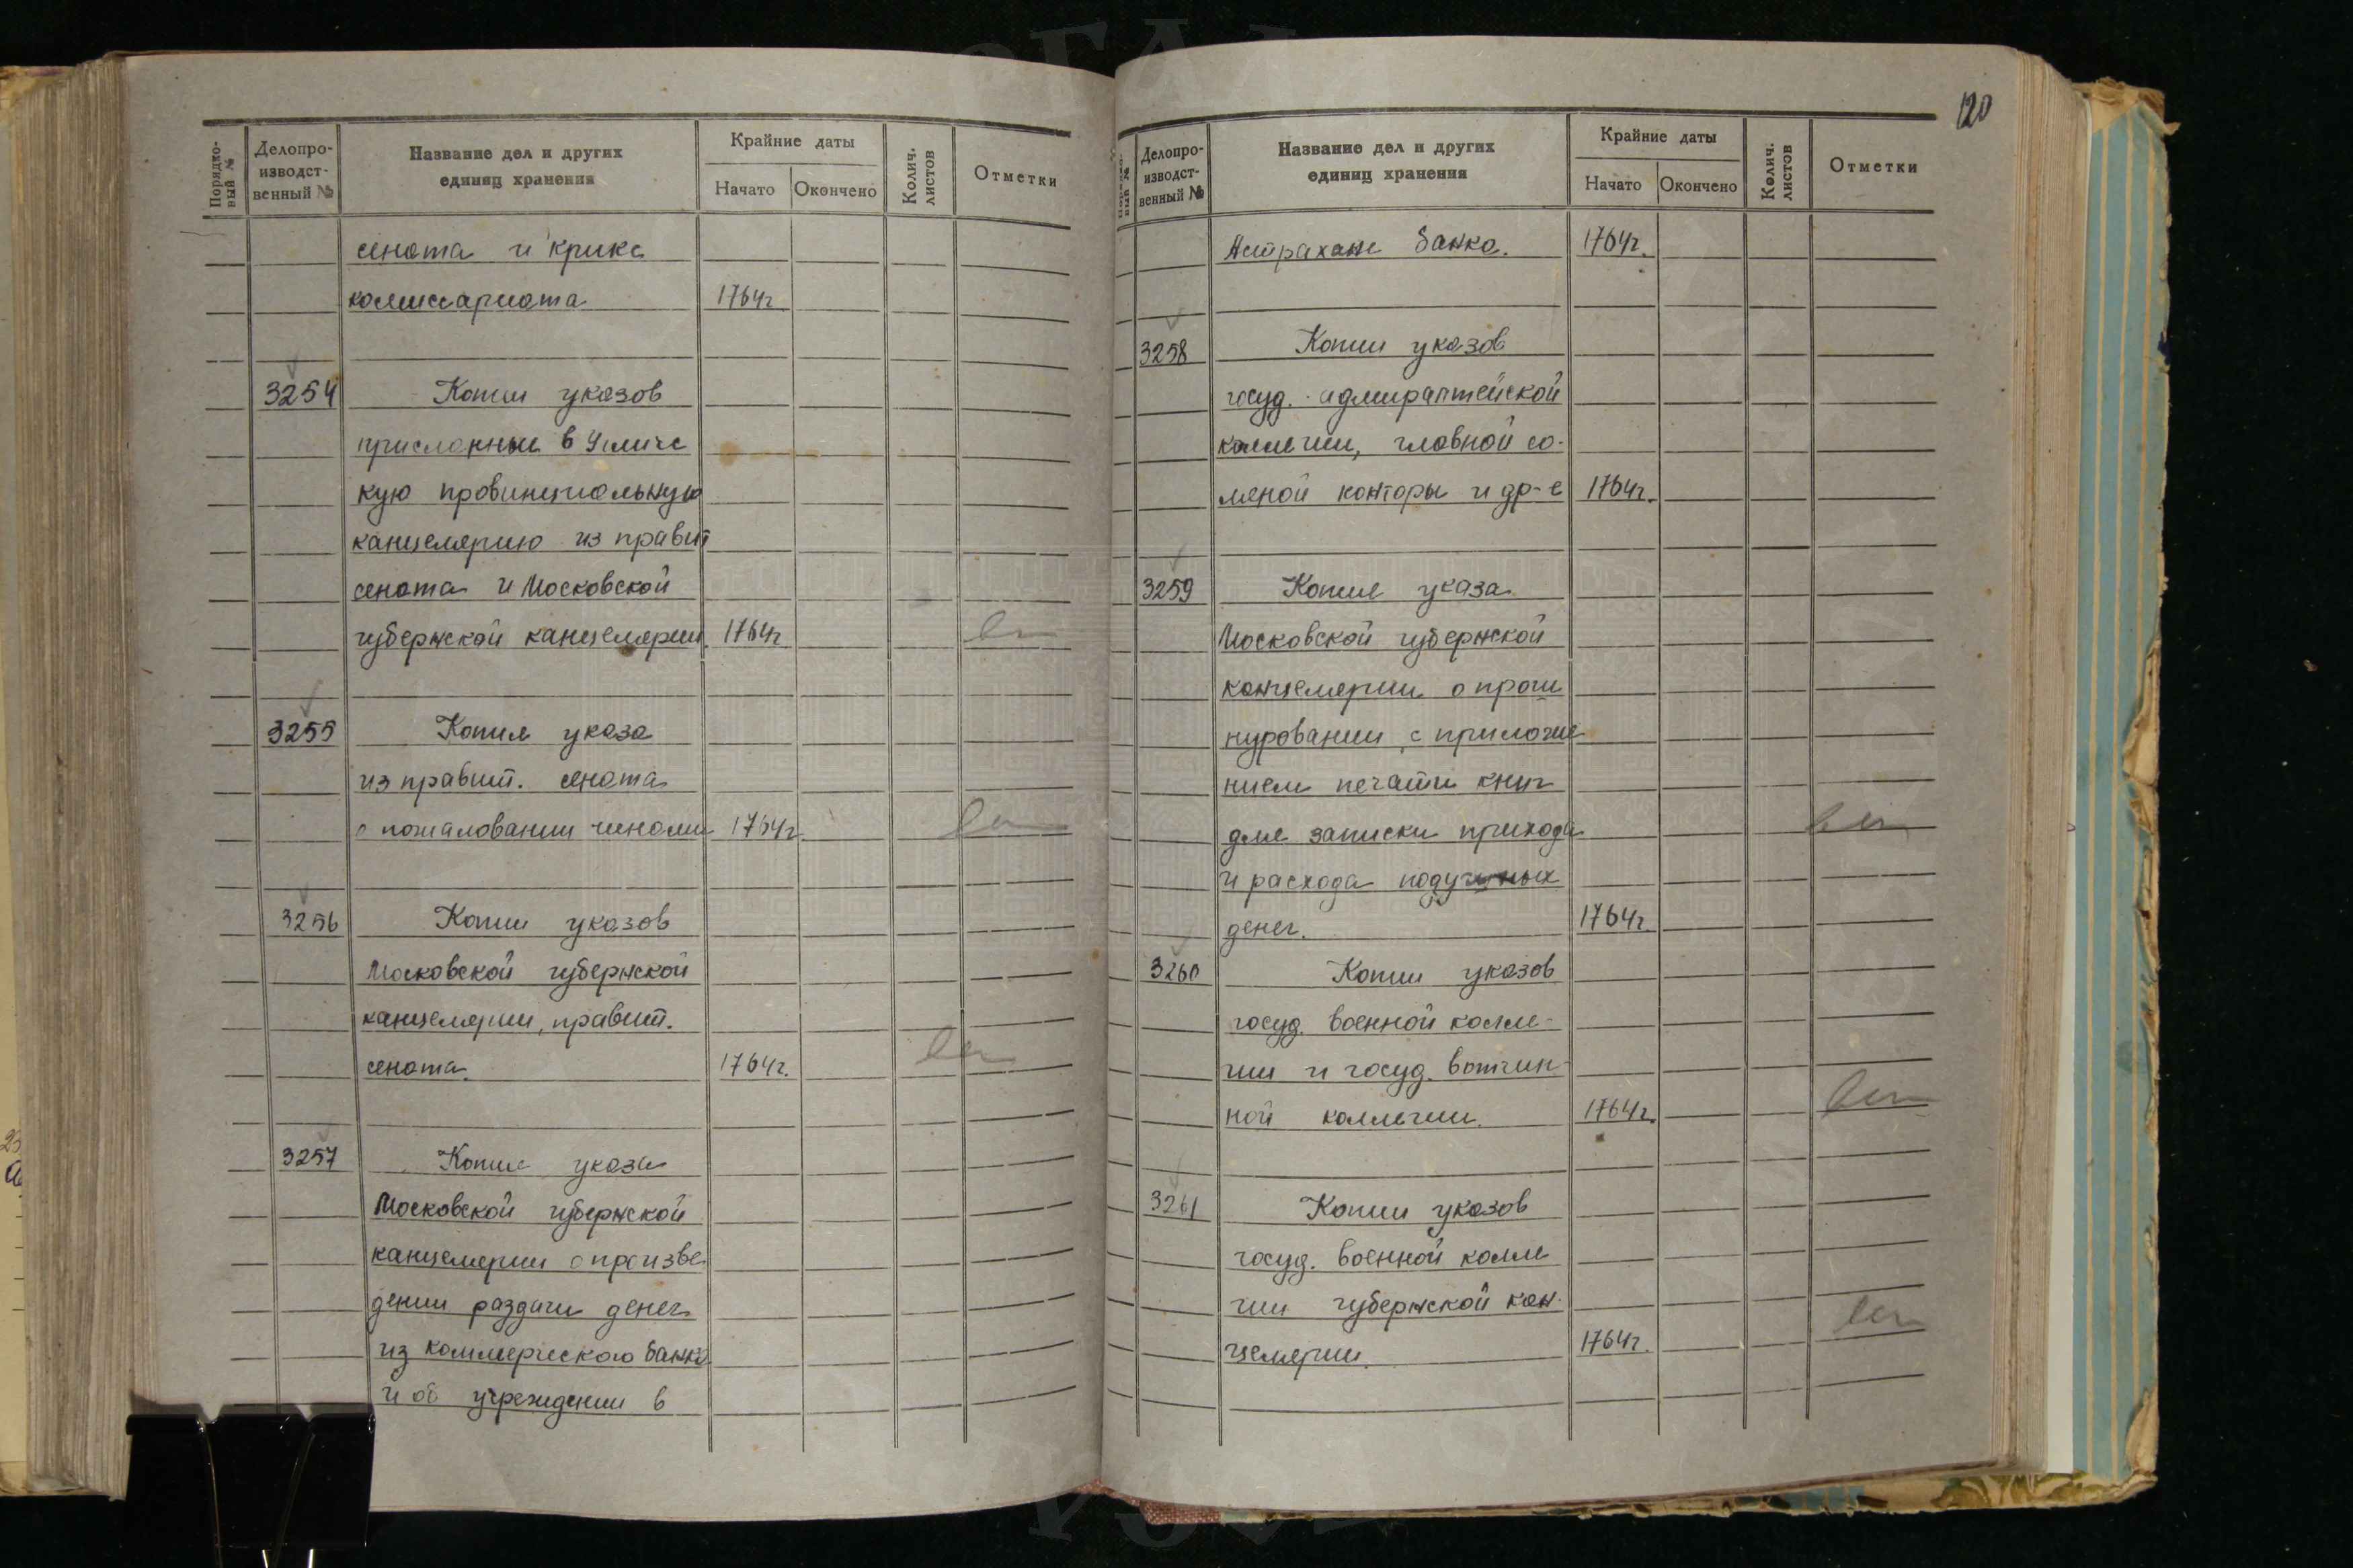 Порядко-
вый №
Делопро-
изводст-
венный №
Название дел и других
единиц хранения
Крайние даты
Начато Окончено
Колич.
листов
Отметки
сената и крикс
комиссариата 1764г
3254 Копии указов
присланные в Углич
кую провинциальную
канцелярию из правит
сената и Московской
губернской канцелярии. 1764г
3255 Копия указа
из правит. сената
о пожаловании чинами 1764г.
3256 Копии указов
Московской губернской
канцелярии, правит.
сената. 1764г.
3257 Копия указа
Московской губернской
канцелярии о произве
дении раздачи денег
из коммерческого банка
и об учреждении в
120
Порядко-
вый №
Делопро-
изводст-
венный №
Название дел и других
единиц хранения
Крайние даты
Начато Окончено
Колич.
листов
Отметки
Астрахане банка. 1764г.
3258 Копии указов
госуд. адмиралтейской
коллегии, главной со-
ляной конторы и др-е 1764г.
3259 Копия указа
Московской губернской
канцелярии о прош
нуровании с приложе
нием печати книг
для записки прихода
и расхода подушных
денег. 1764г.
3260 Копии указов
госуд. военной колле-
гии и госуд. вотчин-
ной коллегии. 1764г.
3261 Копии указов
госуд. военной колле
гии губернской кан-
целярии. 1764г.